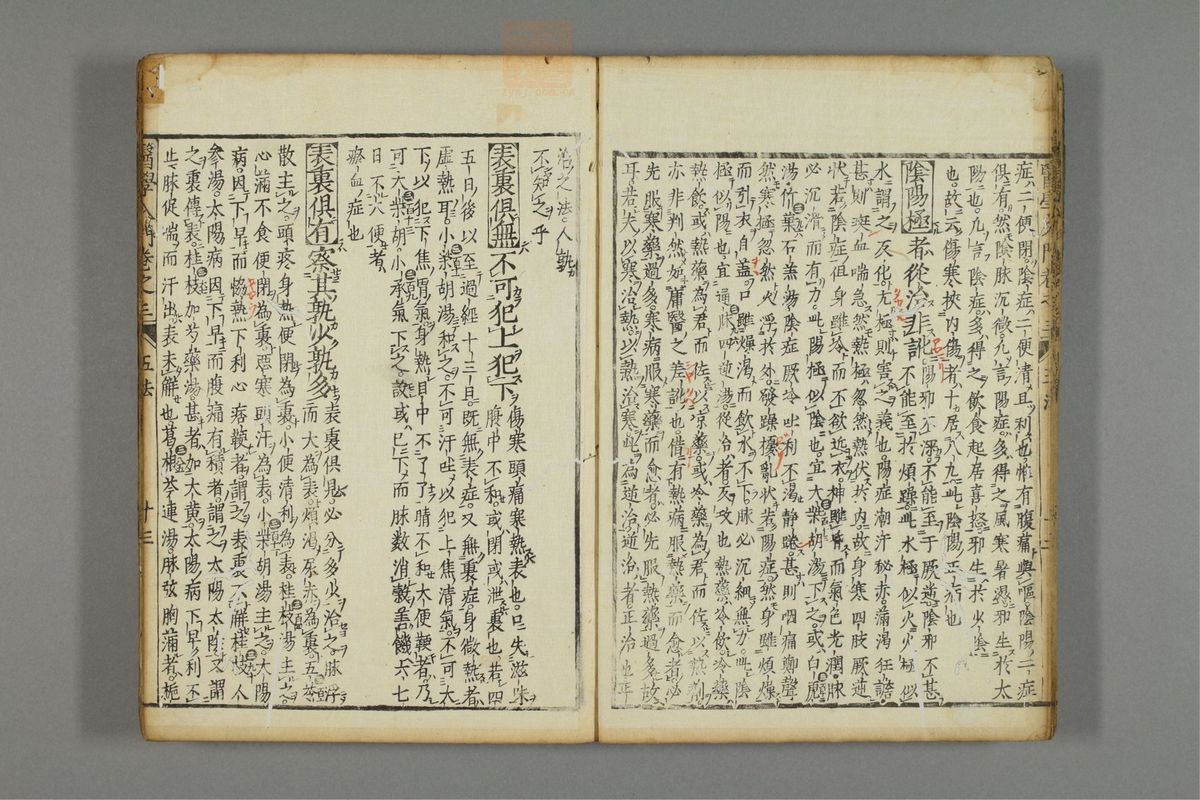 症二便閉陰症二便清且利也惟有腹痛與嘔陰陽二症
俱有然陰脉沉微凡言陽症多得之風寒暑濕邪生於太
陽也凡言陰症多得之飲食起居喜怒邪生於少陰
也故云傷寒挾內傷者十居八九此陰陽正病也
陰陽極者從治非訛陽邪不深不能至于厥逆陰邪不甚
不能至於煩躁此水極似火火極似
水謂之反化亢極則害之義也陽症潮汗秘赤滿渴狂譫
甚則斑血喘急然熱極忽然熱伏於內故身寒四肢厥逆
狀若陰症但身雖冷而不欲近衣神雖昏而氣色光潤脉
必沉滑而有力此陽極似陰也宜大柴胡湯下之或白虎
湯竹葉石羔湯陰症厥冷吐利不渴靜踡甚則咽痛鄭聲
然寒極忽然火浮於外發躁擾亂狀若陽症然身雖煩燥
而引衣自蓋口雖燥渴而飲水不下脉必沉細無力此陰
極似陽也宜通脉四逆湯從治者反攻也熱藥冷飲冷藥
熱飲或熱藥為君而佐以凉藥或冷藥為君而佐以熱劑
亦非判然如庸醫之差訛也借有熱病服熱藥而愈者必
先服寒藥過多寒病服寒藥而愈者必先服熱藥過多故
耳若夫以寒治熱以熱治寒此為逆治逆治者正治也平
治之法人孰
不知之乎
表裏俱無不可犯上犯下傷寒頭痛寒熱表也口失滋味
腹中不和或閉或泄裏也若四
五日後以至過經十三日既無表症又無裏症身微熱者
虛熱耳小柴胡湯和之不可汗吐以犯上焦清氣不可大
下以犯下焦胃氣身熱目中不了了睛不和大便鞕者乃
可大柴胡小承氣下之設或已下而脉數消穀善饑六七
日不大便者
瘀血症也
表裏俱有察其孰少孰多表裏俱見必分多少治之脉浮
而大為表煩渴尿赤為裏五苓
散主之頭疼身熱便閉為裏小便清利為表桂枝湯主之
心滿不食便閉為裏惡寒頭汗為表小柴胡湯主之太陽
病因下早而恊熱下利心痞鞕者謂之表裏不解桂枝人
參湯太陽病因下早而腹痛有積者謂之太陽太陰又謂
之裏傳表桂枝加芍藥湯甚者加大黃太陽病下早利不
止脉促喘而汗出表未解也葛根芩連湯脉弦胸滿者梔
醫學入門卷之三 五法 十三